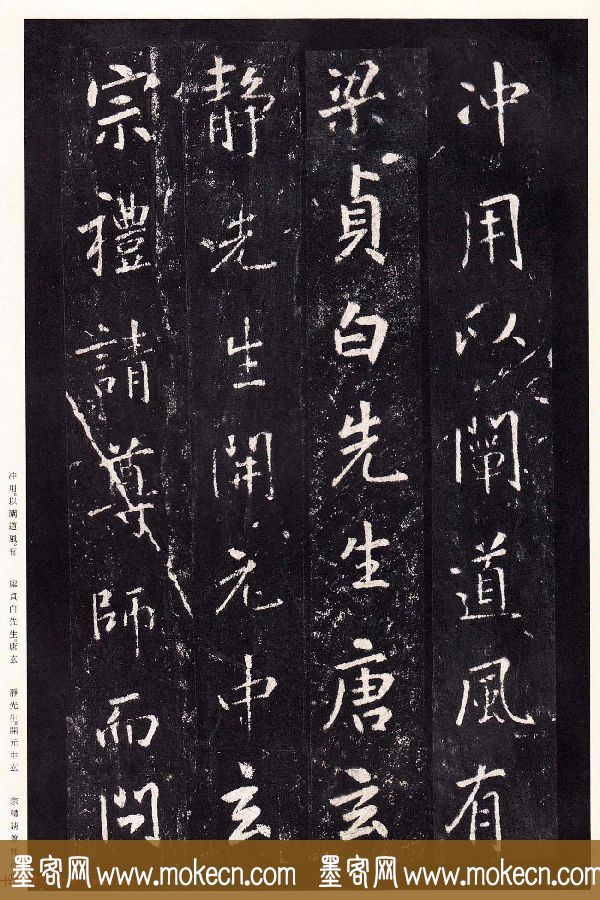 冲用以闡道風有
梁貞白先生唐玄
靜先生開元中玄
宗禮請尊師而問
冲用以闡道風有
梁貞白先生唐玄
靜先生開元中玄
宗禮請尊師
墨客网 www.mokecn.com 墨客网 www.mokecn.com